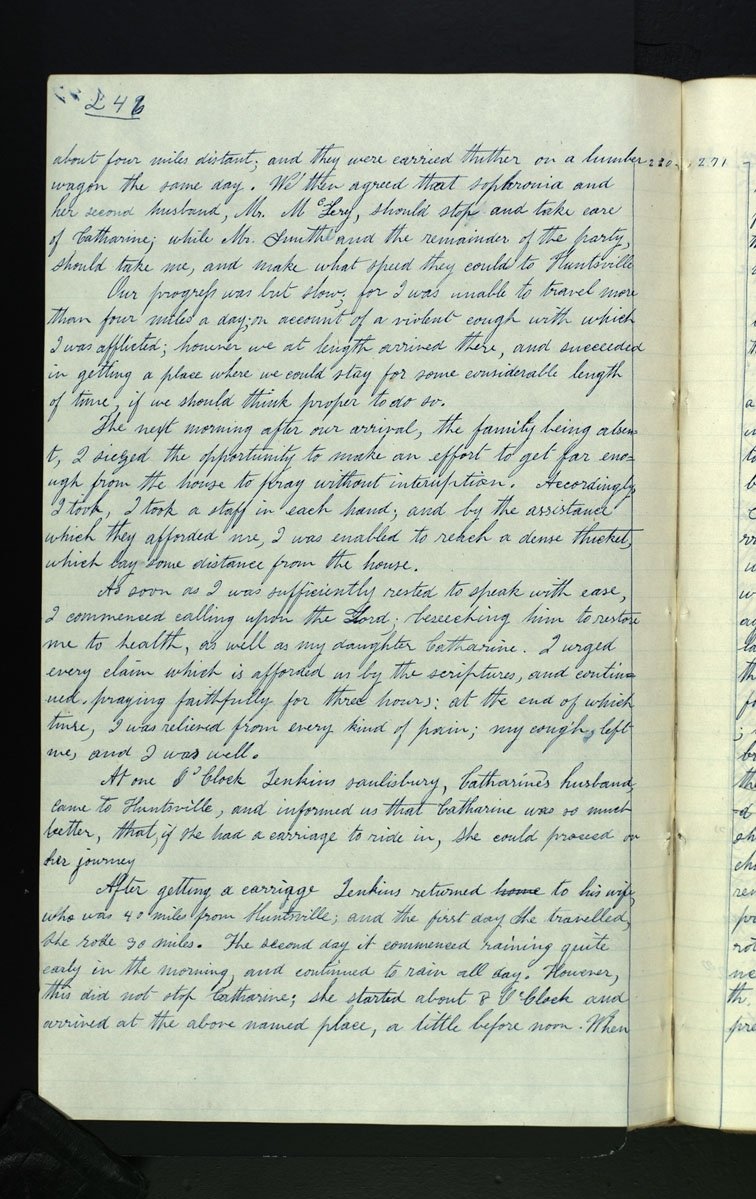 246
about four miles distant; and they were carried thither on a lumber 230. 271
wagon the same day. We then agreed that sophronia and
her second husband, Mr. McLery, should stop and take care
of Catharine; while Mr. Smith and the remainder of the party,
should take me, and make what speed they could to Huntsville
Our progress was but slow; for I was unable to travel more
than four miles a day; on account of a violent cough with which
I was afflicted; however we at length arrived there, and succeeded
in getting a place where we could stay for some considerable length
of time, if we should think proper to do so.
The next morning after our arrival, the family being absen-
t, I siezed the opportunity to make an effort to get far eno=
ugh from the house to pray without interuption. Accordingly,
I took, I took a staff in each hand; and by the assistance
which they afforded me, I was enabled to reach a dense thicket,
which lay some distance from the house.
As soon as I was sufficiently rested to speak with ease,
I commenced calling upon the Lord; beseeching him to restore
me to health, as well as my daughter Catharine. I urged
every claim which is afforded us by the scriptures, and contin=
ued praying faithfully for three hours: at the end of which
time, I was relieved from every kind of pain; my cough left
me, and I was well.
At one O'Clock Jenkins saulisbury, Catharine's husband,
came to Huntsville, and informed us that Catharine was so much
better, that, if she had a carriage to ride in, she could proceed on
her journey
After getting a carriage Jenkins returned home to his wife,
who was 40 miles from Huntsville; and the first day she travelled,
she rode 30 miles. The second day it commenced raining quite
early in the morning, and continued to rain all day. However,
this did not stop Catharine; she started about 8 O'Clock and
arrived at the above named place, a little before noon. When